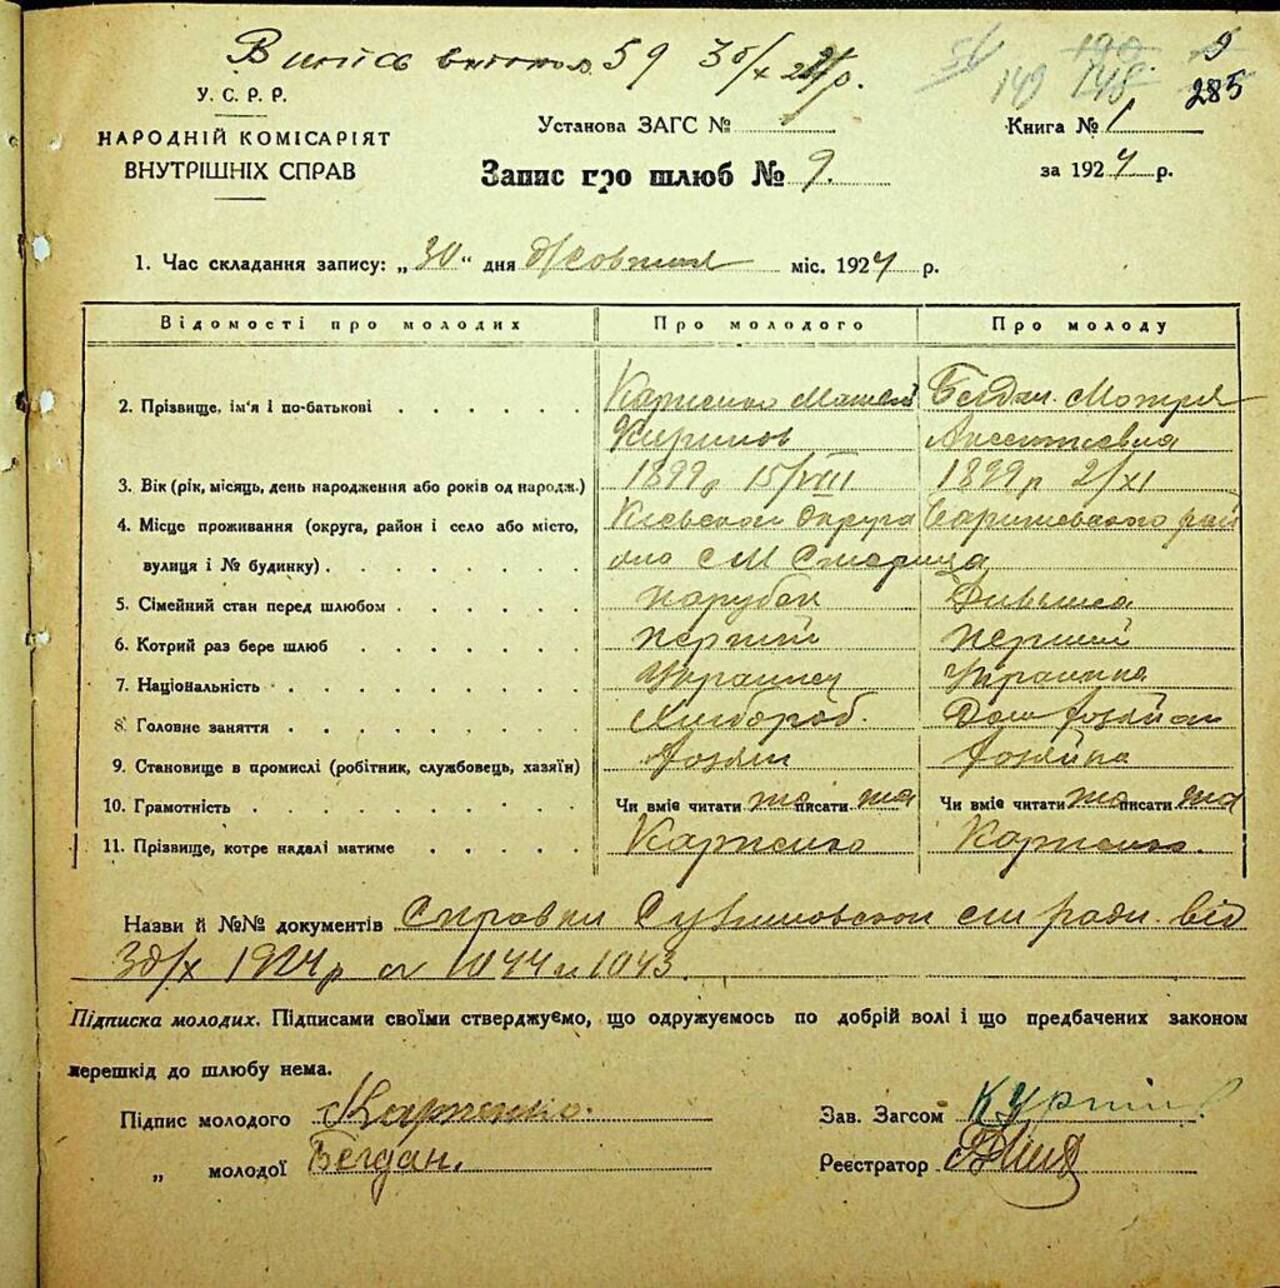 59 30/X 24 р.
149 148 190 9
285
У. С. Р. Р.
НАРОДНІЙ КОМІСАРІЯТ
ВНУТРІШНІХ СПРАВ
Установа ЗАГС №
Книга № 1
Запис про шлюб № 9.
за 1924 р.
1. Час складання запису: „30" дня Жовтня міс. 1924 р.
Відомості про молодих Про молодого Про молоду
2. Прізвище, ім'я і по-батькові Карпенко Богдан Мотря
Киринов Авсентиевна
3. Вік (рік, місяць, день народження або років од народж.) 1899р 15/VIII 1899р 2/XI
4. Місце проживання (округа, район і село або місто, Киевской Округа Баришевского рай
вулиця і № будинку) она Стариця
5. Сімейний стан перед шлюбом Парубок Дивчина
6. Котрий раз бере шлюб перший перший
7. Національність Украинец Украинка
8. Головне заняття Хлибороб. Дом хозяйка
9. Становище в промислі (робітник, службовець, хазяїн) Хозяин Хозяйка
10. Грамотність Чи вміє читати та писати та Чи вміє читати та писати та
11. Прізвище, котре надалі матиме Карпенко Карпенко.
Назви й №№ документів Справки ради від
30/X 1924р 1044 и 1043.
Підписка молодих. Підписами своїми стверджуємо, що одружуємось по добрій волі і що предбачених законом
перешкід до шлюбу нема.
Підпис молодого Карпенко. Зав. Загсом
„ молодої Богдан. Реєстратор